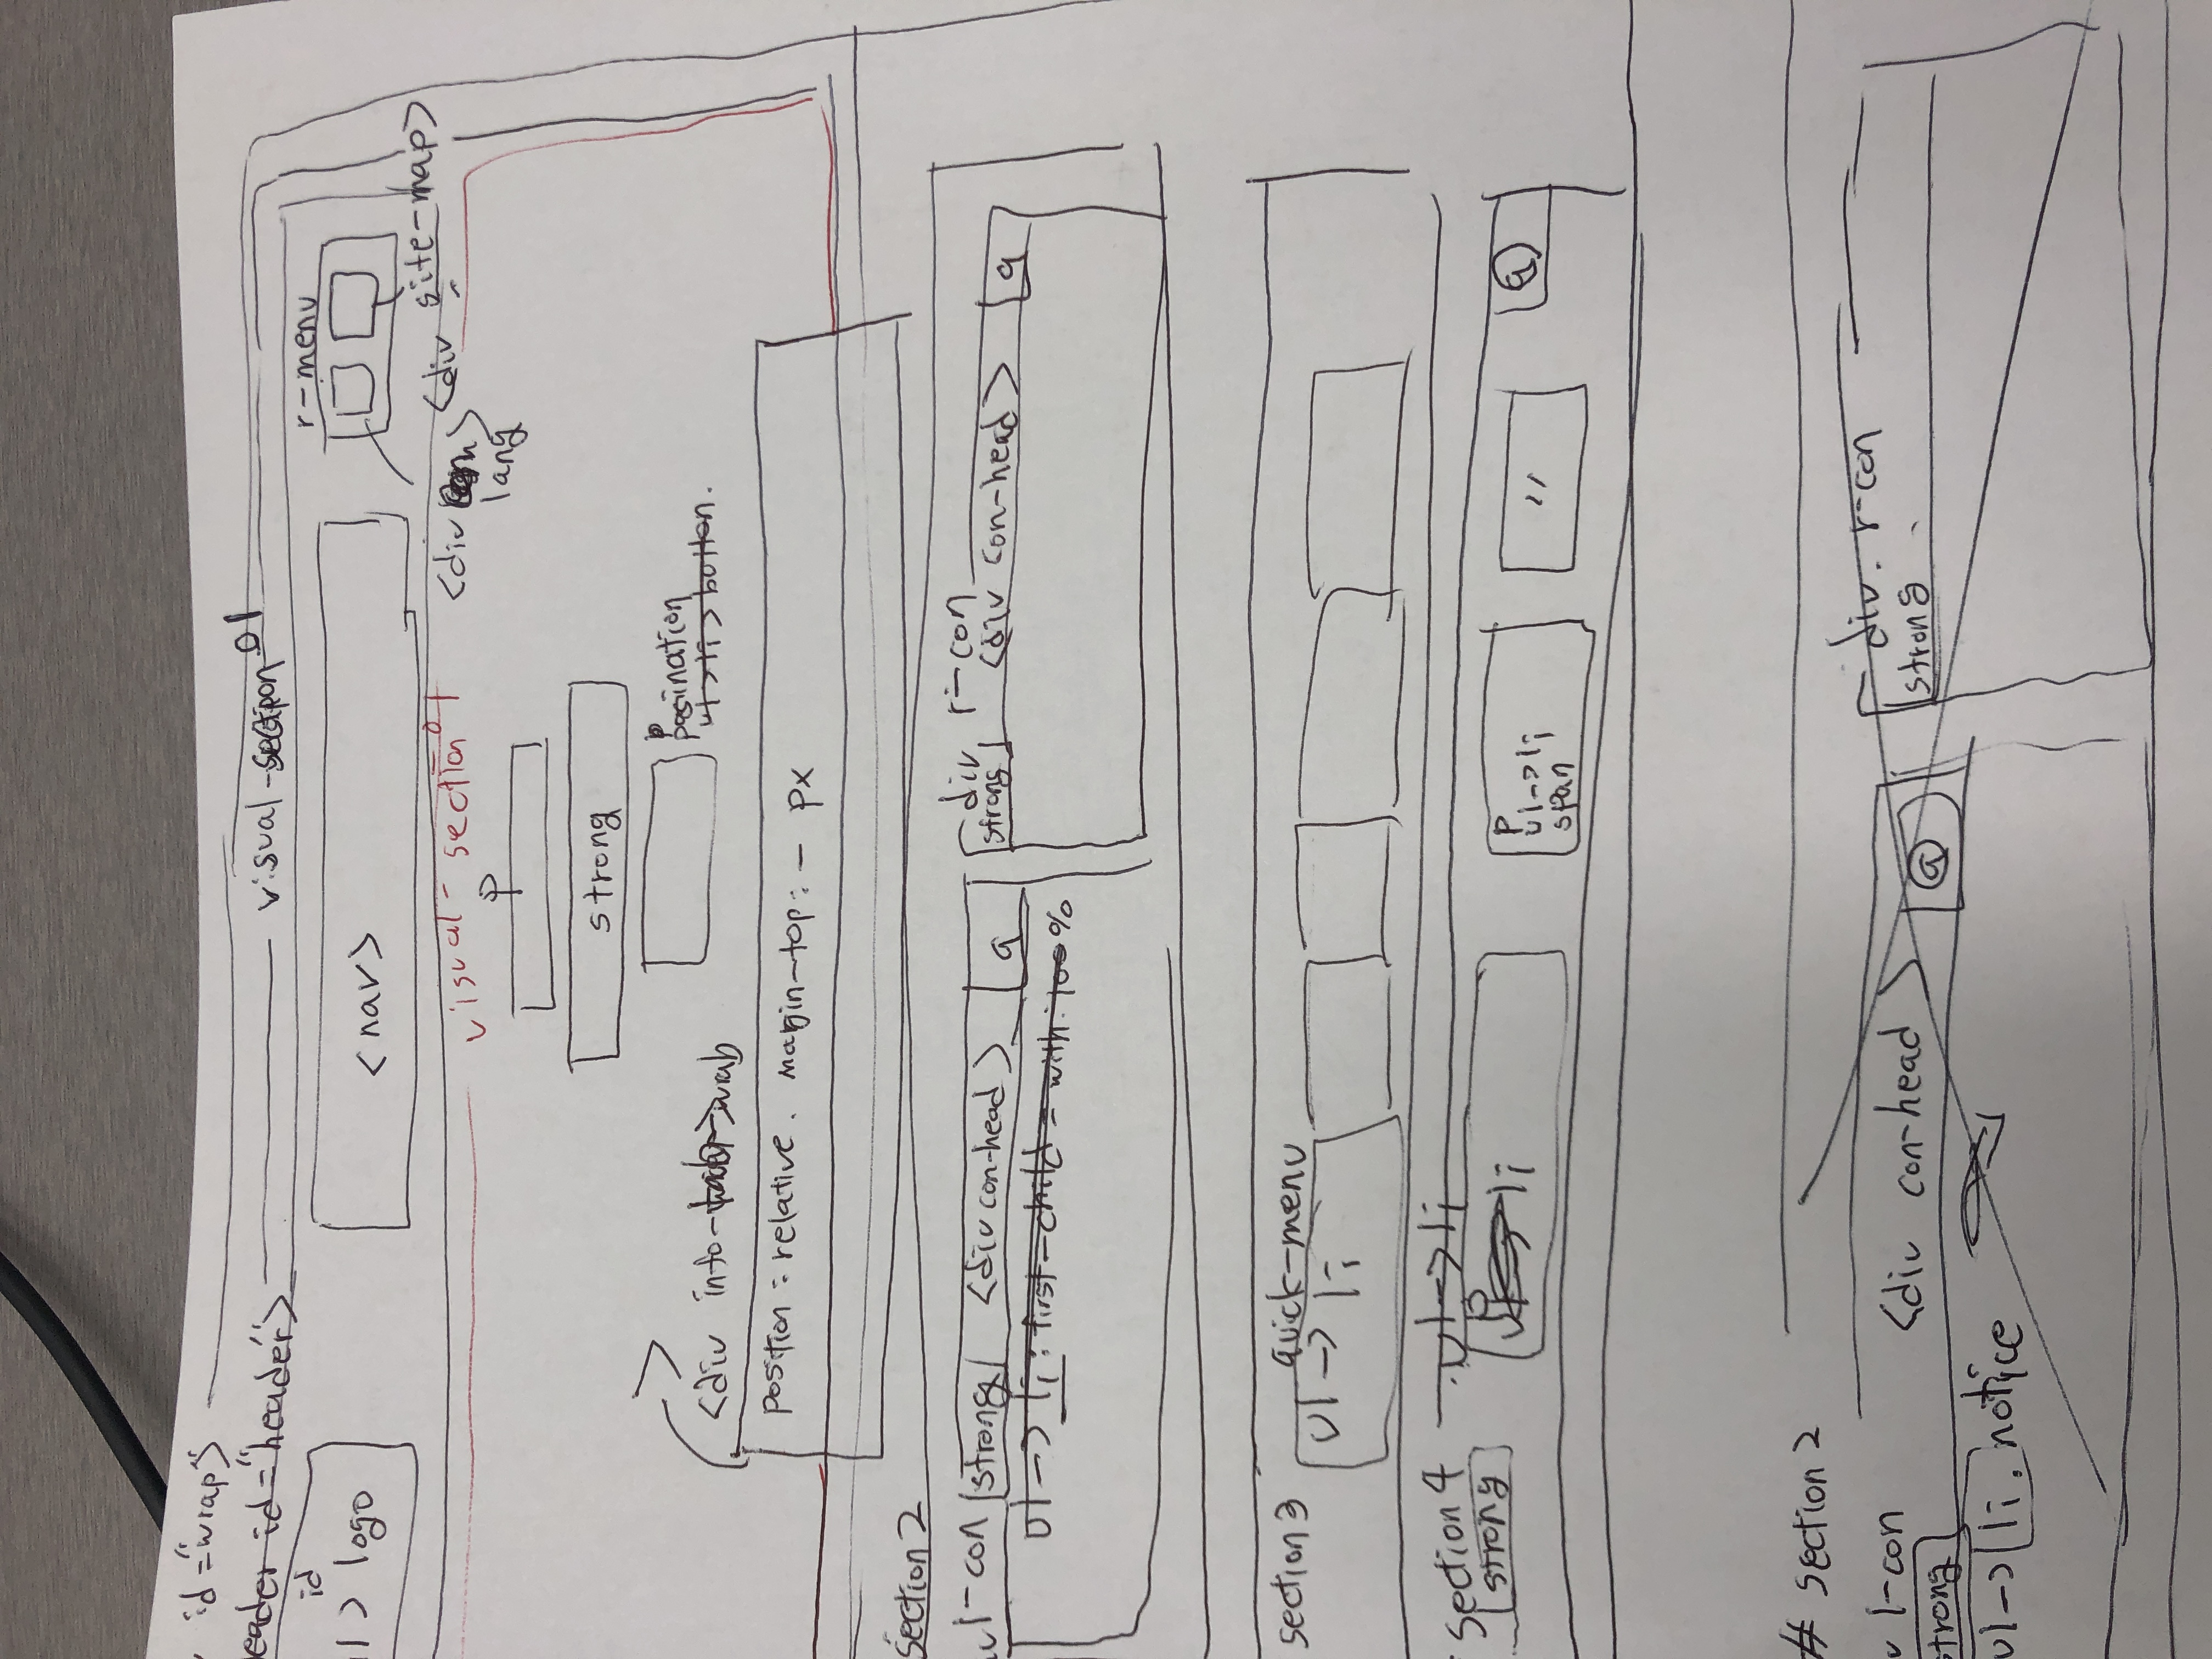 id="wrap">
eader id="header">
visual-section 01
id
> logo
<nav>
r-menu
<div site-map>
<div >
lang
visual-section 01
p
strong
p
pasination
ul>li>button.
<div info- wrab
position: relative. margin-top: - px
section 2
l-con strong <div con-head> a
ul -> li: first-child = with: 100%
div. r-con
strong <div con-head> a
section 3
quick-menu
ul -> li
section 4 ul -> li
strong
p
li
p
ul->li
span
"
a
# section 2
l-con
<div con-head> a
strong
ul-> li. notice
div. r-con
strong